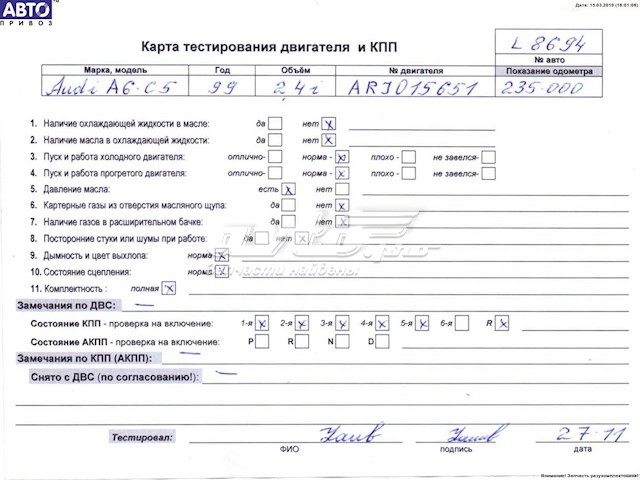 АВТО
ПРИВОЗ
Дата: 15.03.2019 (18:01:08)
Карта тестирования двигателя и КПП
L 8694
№ авто
Марка, модель Год Объём № двигателя Показание одометра
Audi A6-C5 99 2,4i ARJ015651 235.000
1. Наличие охлаждающей жидкости в масле: да нет x
2. Наличие масла в охлаждающей жидкости: да нет x
3. Пуск и работа холодного двигателя: отлично- норма - x плохо - не завелся-
4. Пуск и работа прогретого двигателя: отлично- норма - x плохо - не завелся-
5. Давление масла: есть x нет
6. Картерные газы из отверстия масляного щупа: да нет x
7. Наличие газов в расширительном бачке: да нет x
8. Посторонние стуки или шумы при работе: да нет x
9. Дымность и цвет выхлопа: норма x
10. Состояние сцепления: норма x
11. Комплектность : полная x
Замечания по ДВС: —
Состояние КПП - проверка на включение: 1-я x 2-я x 3-я x 4-я x 5-я x 6-я R x
Состояние АКПП - проверка на включение: P R N D
Замечания по КПП (АКПП): —
Снято с ДВС (по согласованию!): —
Тестировал: 27-11
ФИО подпись дата